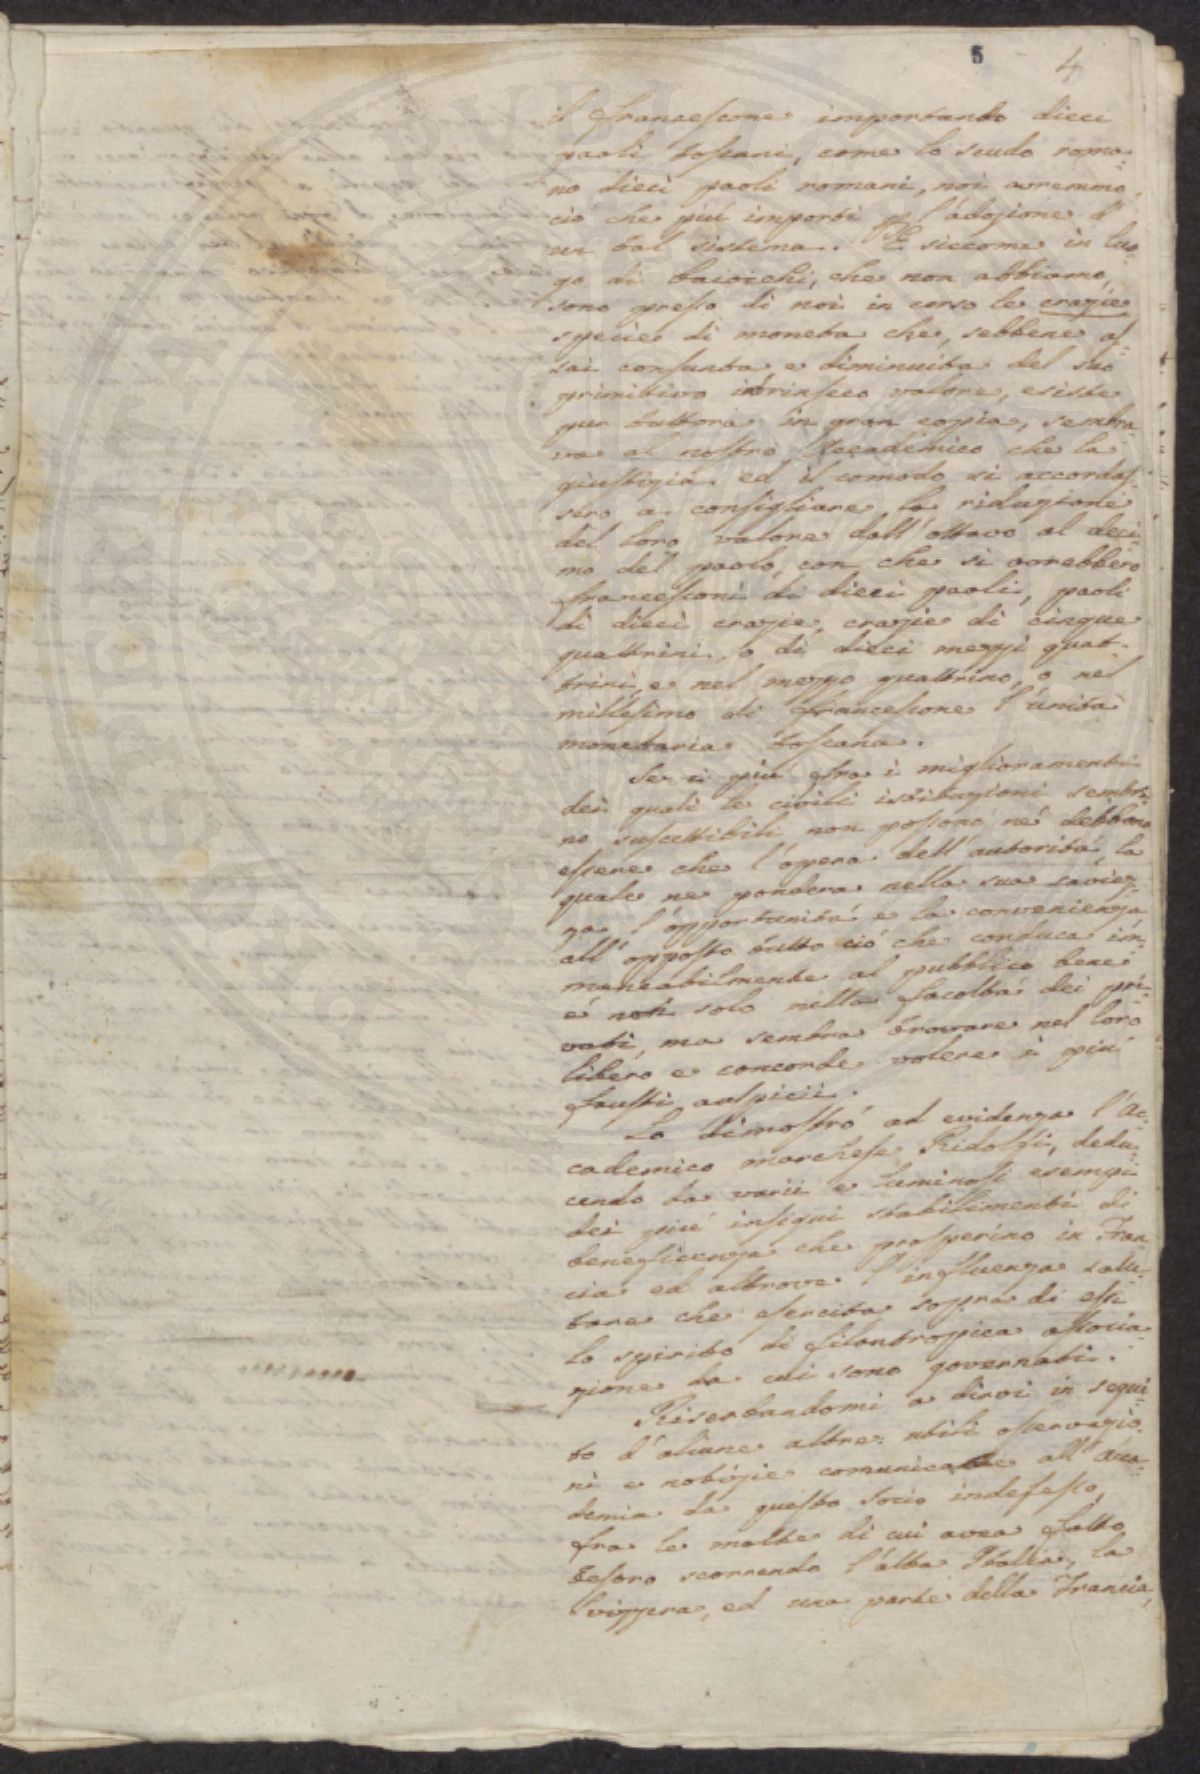 5 4
il francescone importando dieci
paoli toscani, come lo scudo roma-
no dieci paoli romani, noi avremmo
ciò che più importi p l'adozione d'
un tal sistema. E siccome in luo-
go di baiocchi, che non abbiamo,
sono presso di noi in corso le crazie
specie di moneta che, sebbene as-
sai consunta e diminuita del suo
primitivo intrinseco valore, esiste
pur tuttora in gran copia, sembra-
va al nostro Accademico che la
giustizia ed il comodo si accordas-
sero a consigliare la riduzione
del loro valore dall'ottavo al deci-
mo del paolo, con che si avrebbero
francesconi di dieci paoli, paoli
di dieci crazie, crazie di cinque
quattrini, o di dieci mezzi quat-
trini, e nel mezzo quattrino, o nel
millesimo di francescone l'unità
monetaria toscana.
Se i più fra i miglioramenti
dei quali le civili istituzioni sembri-
no suscettibili non possono né debbano
essere che l'opera dell'autorità, la
quale ne pondera nella sua saviez-
za l'opportunità e la convenienza
all'opposto tutto ciò che conduca im-
mancabilmente al pubblico bene
è non solo nella facoltà dei pri-
vati, ma sembra trovare nel loro
libero e concorde volere i più
fausti auspicii.
Lo dimostrò ad evidenza l'Ac-
cademico marchese Ridolfi, dedu-
cendo da varii e luminosi esempi
dei più insigni stabilimenti di
beneficenza che prosperino in Fran-
cia ed altrove l'influenza salu-
tare che esercita sopra di essi
lo spirito di filantropica associa-
zione da cui sono governati.
Riserbandomi a dirvi in segui-
to d'alcune altre utili osservazio-
ni e notizie comunicate all'Acca-
demia da questo socio indefesso,
fra le molte di cui avea fatto
tesoro scorrendo l'alta Italia, la
Svizzera, ed una parte della Francia,